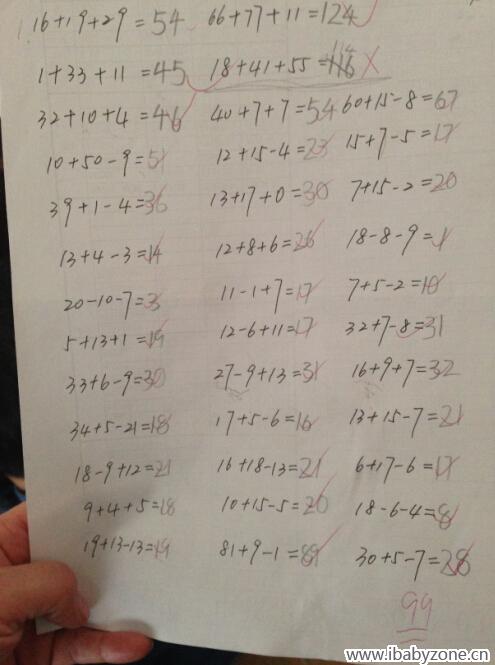 1. 16+19+29=54 66+77+11=124
1+33+11=45 18+41+55=116 114
32+10+4=46 40+7+7=54 60+15-8=67
10+50-9=51 12+15-4=23 15+7-5=17
39+1-4=36 13+17+0=30 7+15-2=20
13+4-3=14 12+8+6=26 18-8-9=1
20-10-7=3 11-1+7=17 7+5-2=10
5+13+1=19 12-6+11=17 32+7-8=31
33+6-9=30 27-9+13=31 16+9+7=32
34+5-21=18 17+5-6=16 13+15-7=21
18-9+12=21 16+18-13=21 6+17-6=17
9+4+5=18 10+15-5=20 18-6-4=8
19+13-13=19 81+9-1=89 30+5-7=28
99
www.ibabyzone.cn